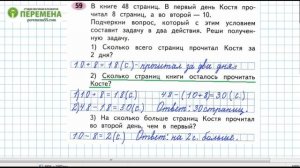 ПЕРЕМЕНА
59
В книге 48 страниц. В первый день Костя про-
читал 8 страниц, а во второй — 10.
Подчеркни вопрос, который с этим условием
составит задачу в два действия. Реши получен-
ную задачу.
1) Сколько всего страниц прочитал Костя за
2 дня?
10+8=18(с.)-прочитал за два дня
2) Сколько страниц книги осталось прочитать
Косте?
1) 10+8=18(с.) 48-(10+8)=30(с.)
2) 48-18=30(с.) Ответ: 30 страниц.
3) На сколько больше страниц прочитал Костя
во второй день, чем в первый?
10-8=2(с.) Ответ: на 2 с. больше.